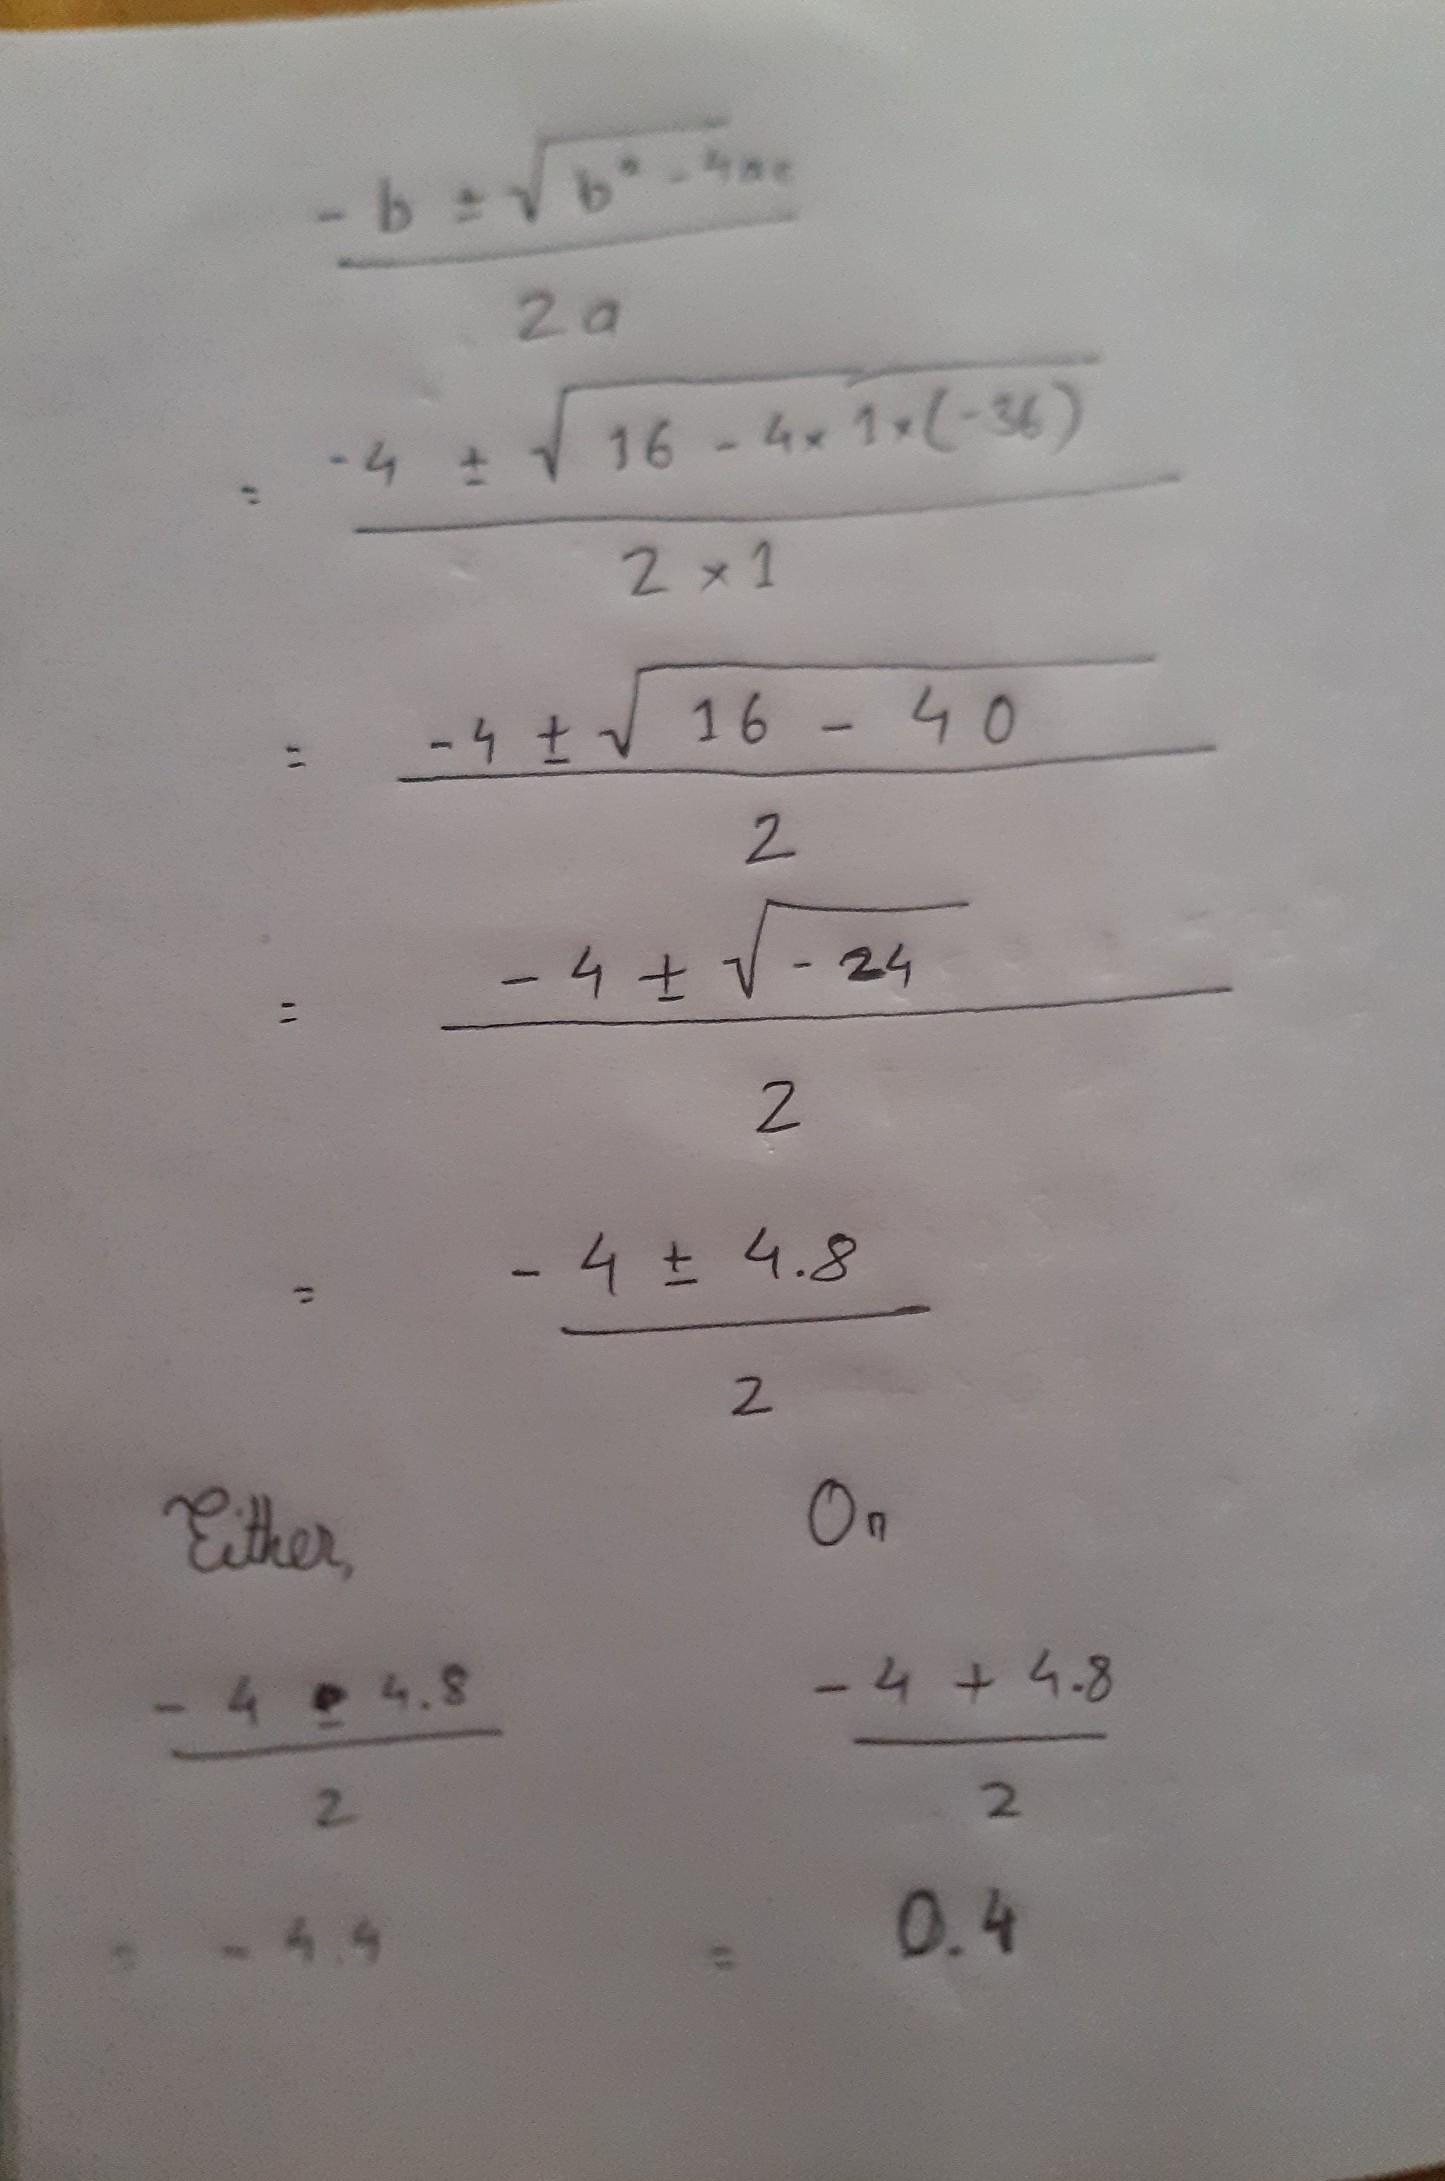 -b ± √b² - 4ac
2a
= -4 ± √16 - 4×1×(-36)
2 × 1
= -4 ± √16 - 40
2
= -4 ± √-24
2
= -4 ± 4.8
2
Either, Or
-4 - 4.8 -4 + 4.8
2 2
= -4.4 = 0.4